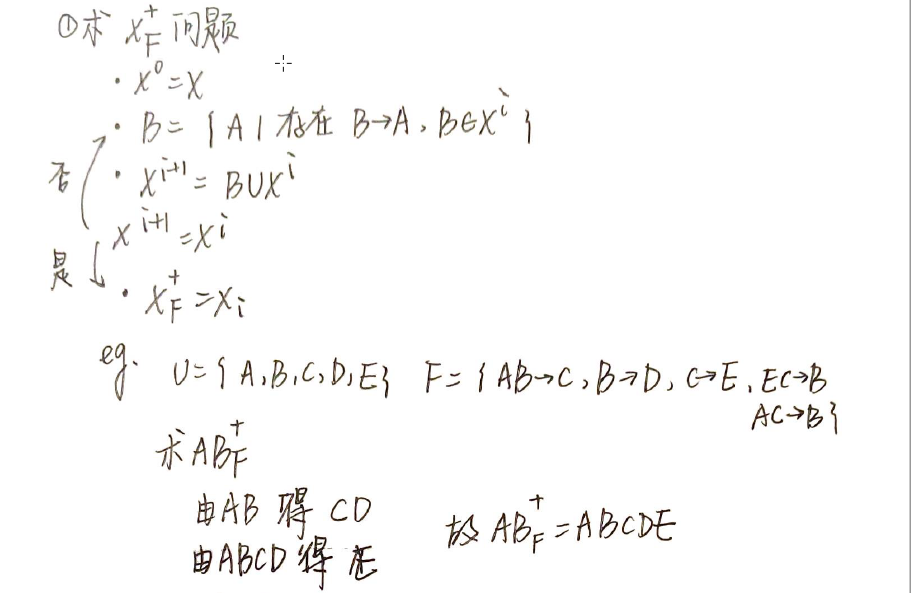 ①求 X_F^+ 问题
· X^0=X
· B={A|存在 B→A, B∈X^i}
否
· X^{i+1}=B∪X^i
X^{i+1}=X^i
是
· X_F^+=X_i
eg. U={A,B,C,D,E} F={AB→C,B→D,C→E,EC→B
AC→B}
求AB_F^+
由AB 得 CD
由ABCD得 E
故 AB_F^+=ABCDE